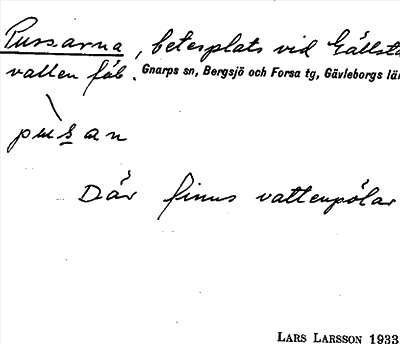 Pussarna, betesplats vid Gällsta
vallen fäb. Gnarps sn, Bergsjö och Forsa tg, Gävleborgs lä
pusan
Där finns vattenpölar
LARS LARSSON 1933